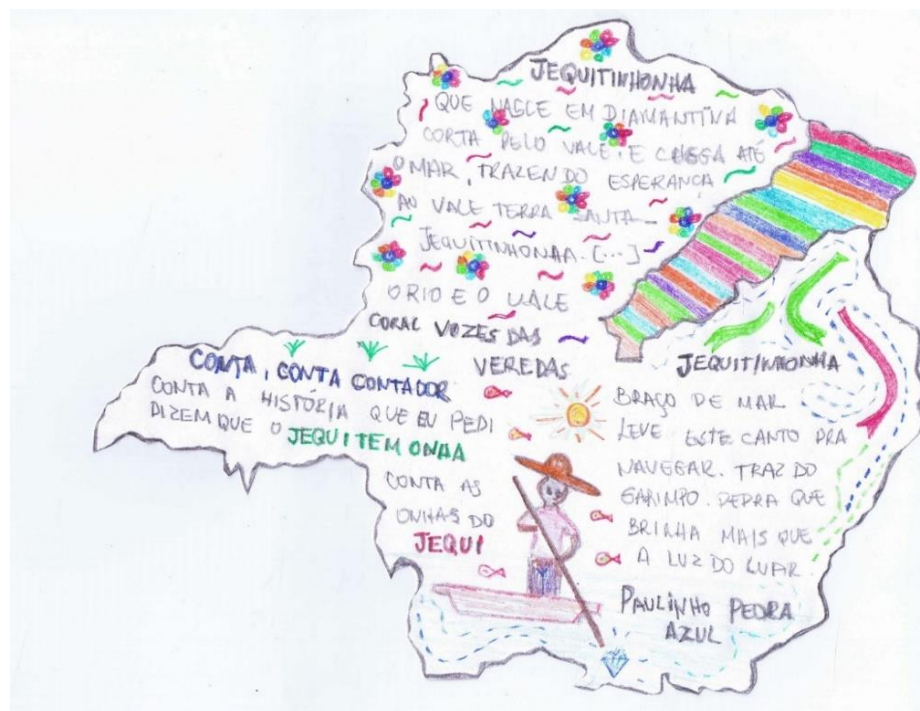 JEQUITINHONHA
QUE NASCE EM DIAMANTINA
CORTA PELO VALE. E CHEGA ATÉ
O MAR, TRAZENDO ESPERANÇA
AO VALE TERRA SANTA
JEQUITINHONHA. [...]
O RIO E O VALE
CORAL VOZES DAS
VEREDAS
CONTA, CONTA CONTADOR
CONTA A HISTÓRIA QUE EU PEDI
DIZEM QUE O JEQUI TEM ONHA
CONTA AS
ONHAS DO
JEQUI
JEQUITINHONHA
BRAÇO DE MAR
LEVE ESTE CANTO PRA
NAVEGAR. TRAZ DO
GARIMPO. PEDRA QUE
BRILHA MAIS QUE
A LUZ DO LUAR.
PAULINHO PEDRA
AZUL